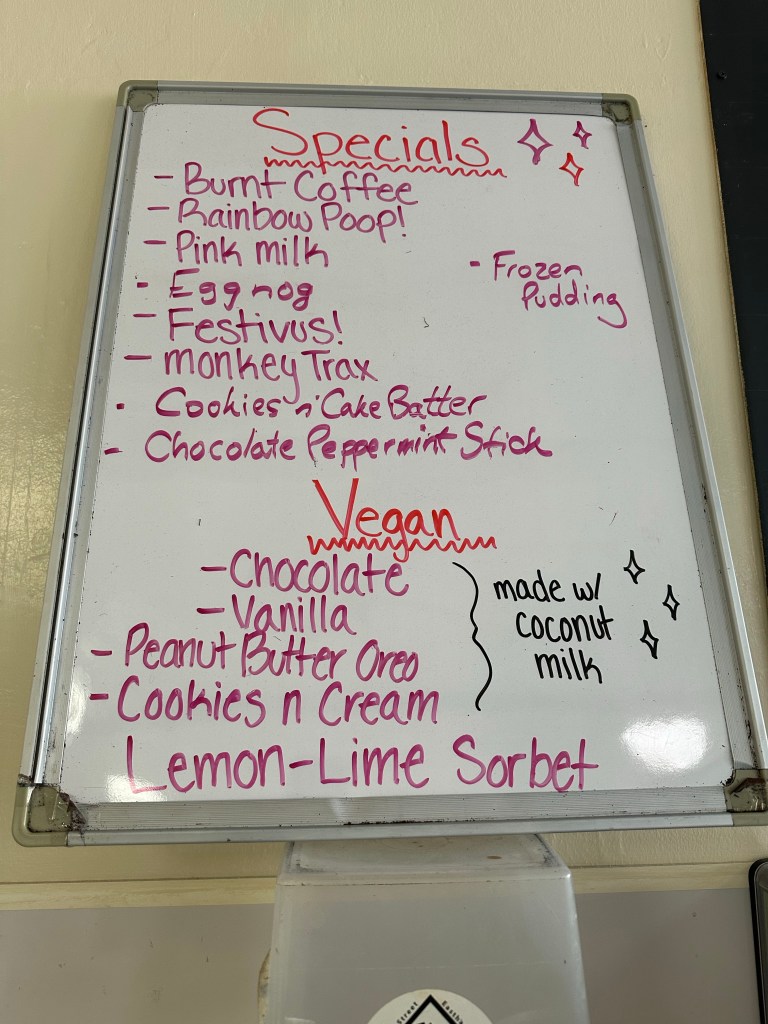 Specials
- Burnt Coffee
- Rainbow Poop!
- Pink milk
- Egg nog
- Festivus!
- monkey Trax
- Cookies n' Cake Batter
- Chocolate Peppermint Stick
- Frozen
Pudding
Vegan
- Chocolate
- Vanilla
- Peanut Butter Oreo
- Cookies n Cream
made w/
coconut
milk
Lemon-Lime Sorbet
Street